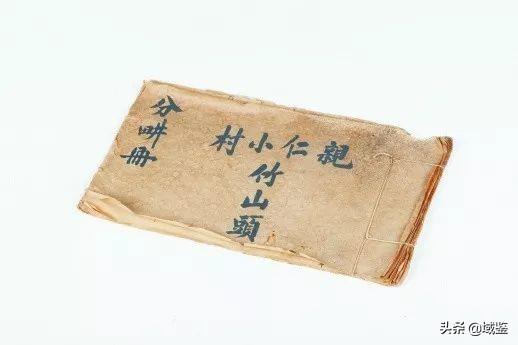 親仁小村
竹山頭
分畊冊
头条 @域鉴